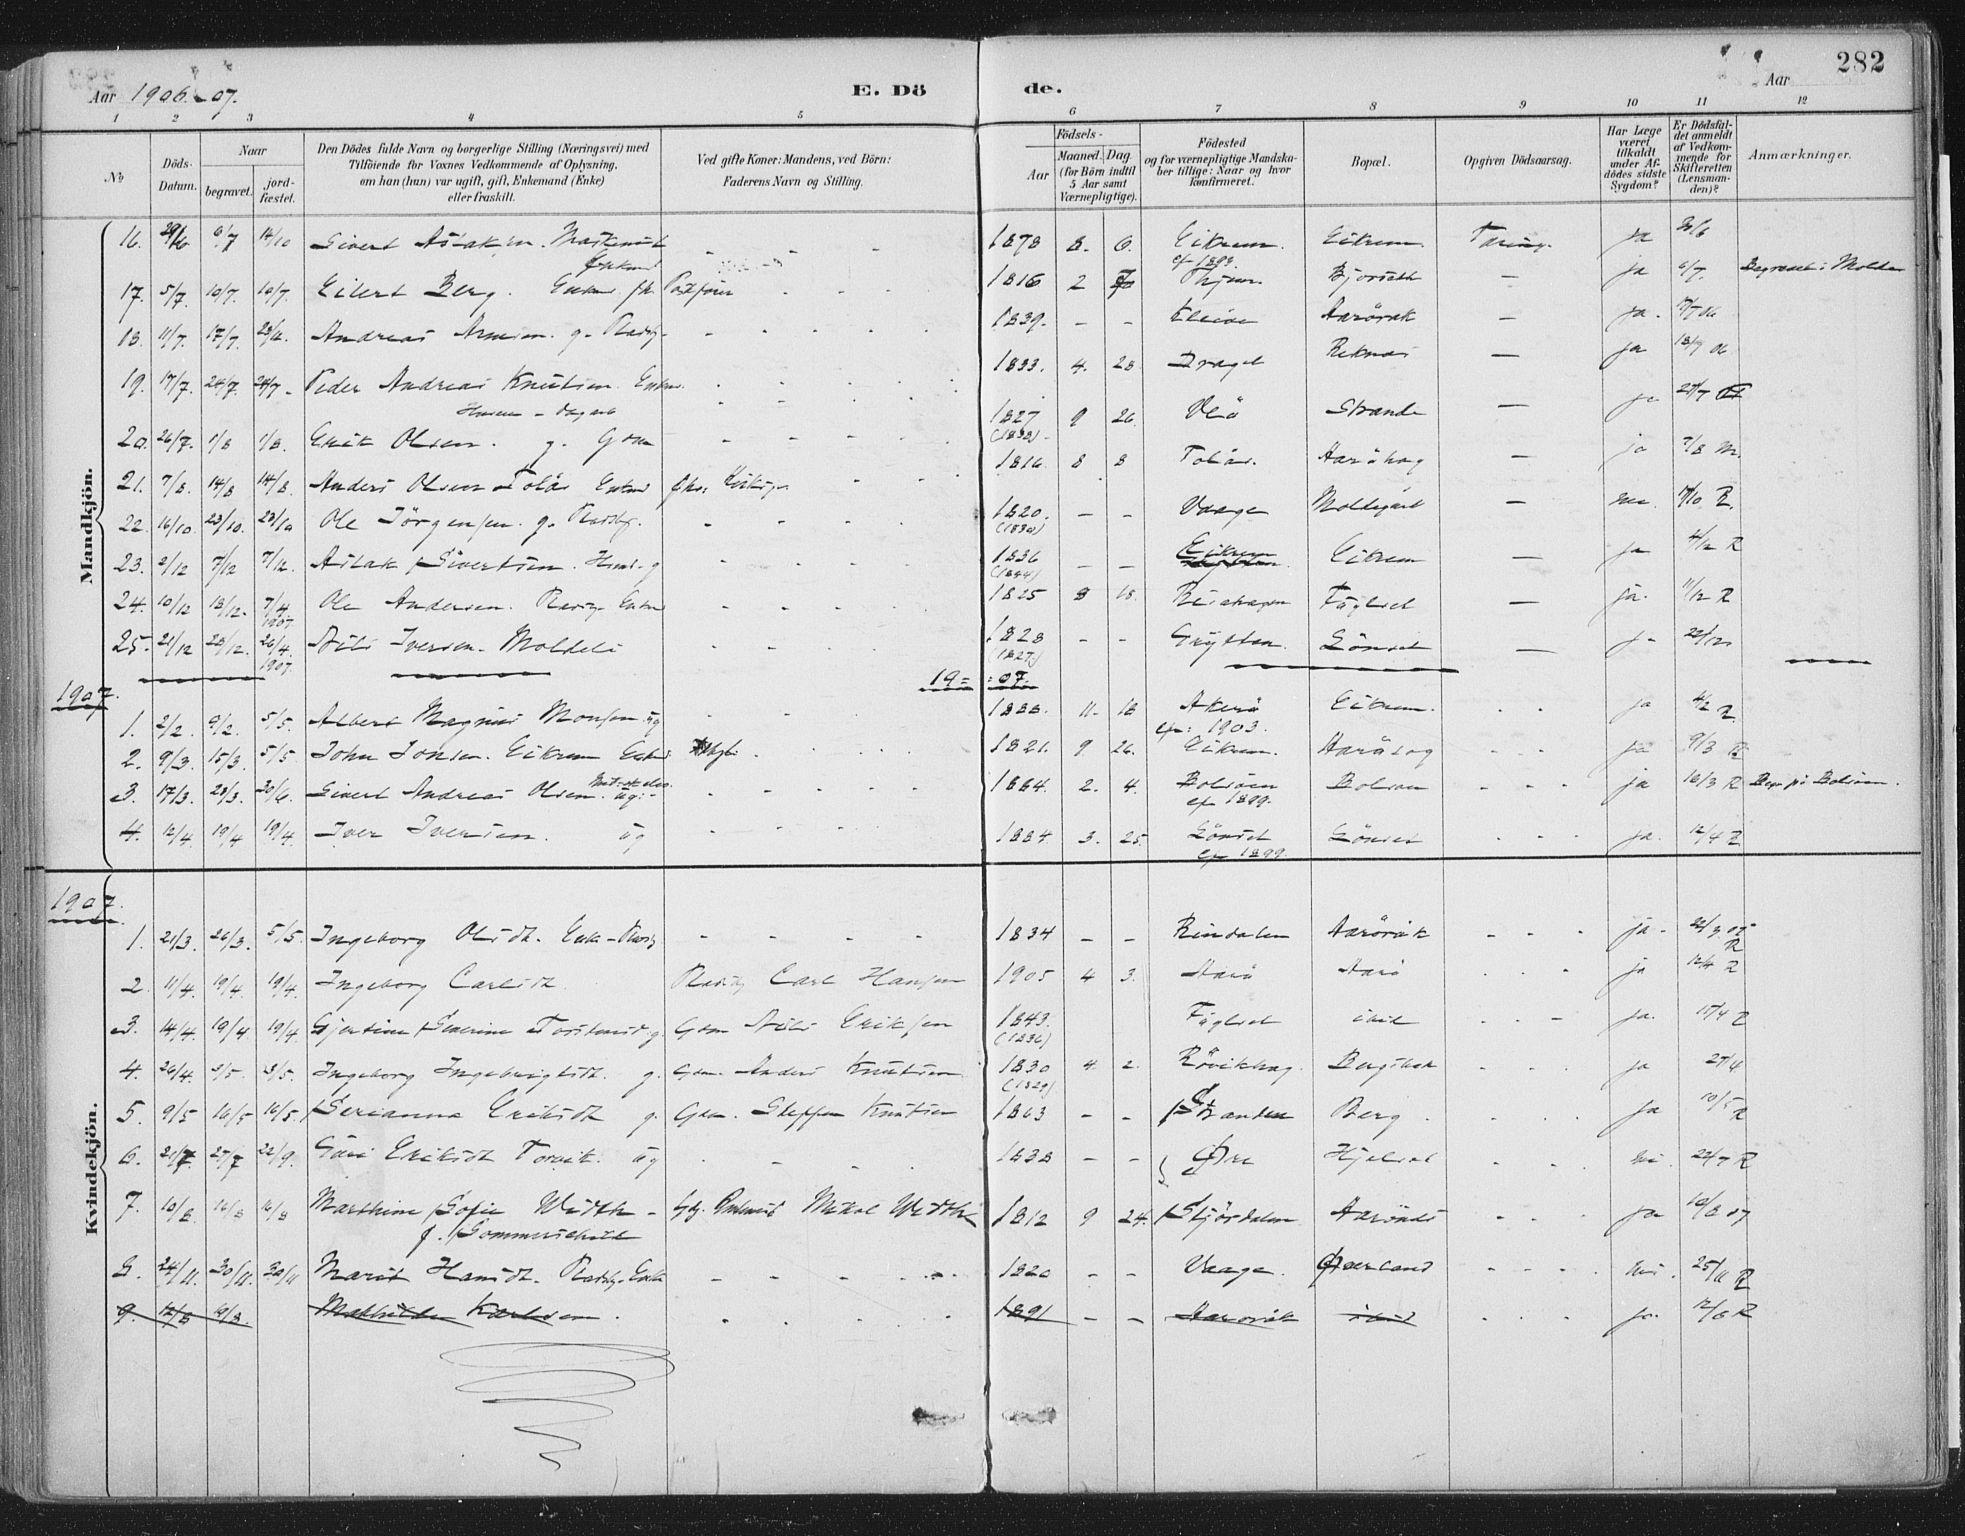 282
Aar 1906-07.
E. Döde.
Aar
1 2 3 4 5 6 7 8 9 10 11 12
No
Döds-Datum.
Naar
begravet.
jord-fæstet.
Den Dödes fulde Navn og borgerlige Stilling (Næringsvei) med
Tilföiende for Voxnes Vedkommende af Oplysning,
om han (hun) var ugift, gift, Enkemand (Enke)
eller fraskilt.
Ved gifte Koner: Mandens, ved Börn:
Faderens Navn og Stilling.
Födsels-
Aar
Maaned. Dag.
(for Börn indtil
5 Aar samt
Værnepligtige).
Födested
og for værnepligtige Mandska-
ber tillige: Naar og hvor
konfirmeret.
Bopæl.
Opgiven Dödsaarsag.
Har Læge
været
tilkaldt
under Af-
dödes sidste
Sygdom?
Er Dödsfal-
det anmeldt
af Vedkom-
mende for
Skifteretten
(Lensman-
den)?
Anmærkninger.
Mandkjön.
16. 29/6 6/7 14/10 Sivert Aslaksen 1878 8. 6. Eikrem. Eikrem. Tæring. ja
17. 5/7. 10/7. 10/7. Eilert Berg. Enkem. 1816 2 Bjørset — ja 6/7. Begravet i Molde
18. 11/7. 17/7. Andreas g. 1839. - - Kleive Aarørøk — ja. 17/7 06
19. 17/7. 24/7. 24/7. Peder Andreas Knutsen Enkem. 1833. 4. 28 Reknes — ja 18/7 06
20. 26/7. 1/8 1/8. Erik Olsen. g. Gbm 1827 9 26. Veø Strande — ja
(1832)
21. 7/8. 14/8 14/8. Anders Olsen Tolås Enkem 1816. 8 8 Tolås. Aarøhag — ja 7/8
22. 16/10. 23/10. 23/10 Ole Jørgensen. g. 1820. - - Vaage Moldegård — nei. 17/10 R.
(1830)
23. 2/12 7/12 7/12. Aslak Sivertsen. g 1836 - - Eikrem Eikrem — ja 4/12 R
(1844)
24. 10/12 18/12. 7/4 1907. Ole Andersen. Enkem 1825 8 18. Fuglset — ja. 11/12 R
25. 21/12 28/12. 26/4. 1907. Nils Iversen. Moldeli 1828 - - Grytten Lønset — ja 22/12
(1827)
1907. 19 = : 07.
1. 2/2. 9/2. 5/5. Albert Magnus Monsen ug 1888. 11. 18 Akerø Eikrem. ja 4/2 R.
1903.
2. 9/3. 15/3. 5/5. John Jonsen. Eikrem Enkem 1821. 9 26. Eikrem. Aarøhag ja 9/3 R
3. 17/3. 23/3. 30/6. Sivert Andreas Olsen. ug. 1884. 2. 4. Bolsøen Bolsøen ja 18/3 R Begr. på Bolsøen.
1899.
4. 12/4. 19/4 19/4. Iver Iversen. ug 1884. 3. 25. Lønset Lønset ja. 12/4 R
1899.
Kvindekjön.
1907.
1. 21/3. 26/3. 5/5. Ingeborg Olsdt. Enke 1834 - - Rindalen Aarørøk ja. 22/3 07 R
2. 11/4. 19/4. 19/4. Ingeborg Carlsdt. Carl Hansen 1905 4 3. Aarø Aarø ja 12/4 R
3. 14/4. 19/4 19/4. Gjertine Severine g. Gbm Nils Eriksen 1843. Fuglset ibid ja. 15/4 R
(1836)
4. 26/4. 3/5. 3/5. Ingeborg Ingebrigtsdt. g. Gbm. Anders Knutsen 1830 4 2. Røvikhag ja 27/4
(1829)
5. 9/5 16/5 16/5. Serianna Eriksdt g. Gbm. Steffen Knutsen 1863 - - Stranden Berg. ja 10/5 R
6. 21/7. 27/7 22/9. Guri Eriksdt Torvik. ug 1838 - - Øre Hjelset nei. 22/7 R
7. 10/8. 16/8 16/8 Marthine Sofie Widthe Mikal Widthe 1812 9 24. Stjørdalen Aarønes ja 10/8 07
f. Sommerschild
8. 24/11. 30/11. 30/11 Marit Hansdt. Enke 1820 - - Vaage. Øverland nei. 25/11 R
9. 12/8 19/8. Mathilde Karlsen. 1891 - - Aarørøk ibid ja. 12/8 R